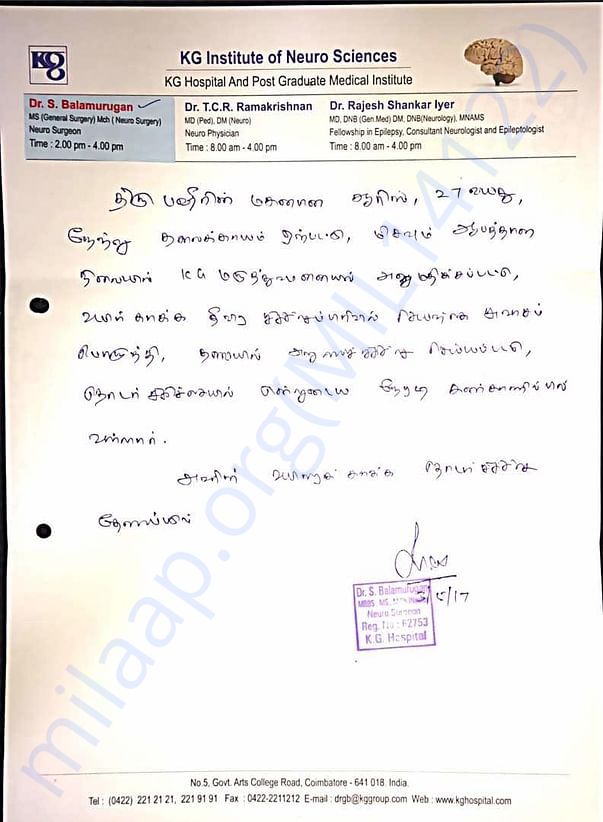 KG
KG Institute of Neuro Sciences
KG Hospital And Post Graduate Medical Institute
Dr. S. Balamurugan
MS (General Surgery) Mch ( Neuro Surgery)
Neuro Surgeon
Time : 2.00 pm - 4.00 pm
Dr. T.C.R. Ramakrishnan
MD (Ped), DM (Neuro)
Neuro Physician
Time : 8.00 am - 4.00 pm
Dr. Rajesh Shankar Iyer
MD, DNB (Gen.Med) DM, DNB(Neurology), MNAMS
Fellowship in Epilepsy, Consultant Neurologist and Epileptologist
Time : 8.00 am - 4.00 pm
திரு பஷீரின் மகனான ஆரிஸ், 27 வயது,
நேற்று தலைக்காயம் ஏற்பட்டு, மிகவும் ஆபத்தான
நிலையில் KG மருத்துவமனையில் அனுமதிக்கப்பட்டு,
உயிர் காக்க தீவிர சிகிச்சைப்பிரிவில் செயற்கை சுவாசப்
பொருத்தி, தலையில் அறுவை சிகிச்சை செய்யப்பட்டு,
தொடர் சிகிச்சையில் என்னுடைய நேரடி கண்காணிப்பில்
உள்ளார்.
அவரின் உயிரைக் காக்க தொடர் சிகிச்சை
5/17
Dr. S. Balamurugan
Neuro Surgeon
Reg. No : 62753
K.G. Hospital
milaap.org(MIL14122)
No.5, Govt. Arts College Road, Coimbatore - 641 018. India.
Tel : (0422) 221 21 21, 221 91 91 Fax : 0422-2211212 E-mail : drgb@kggroup.com Web : www.kghospital.com